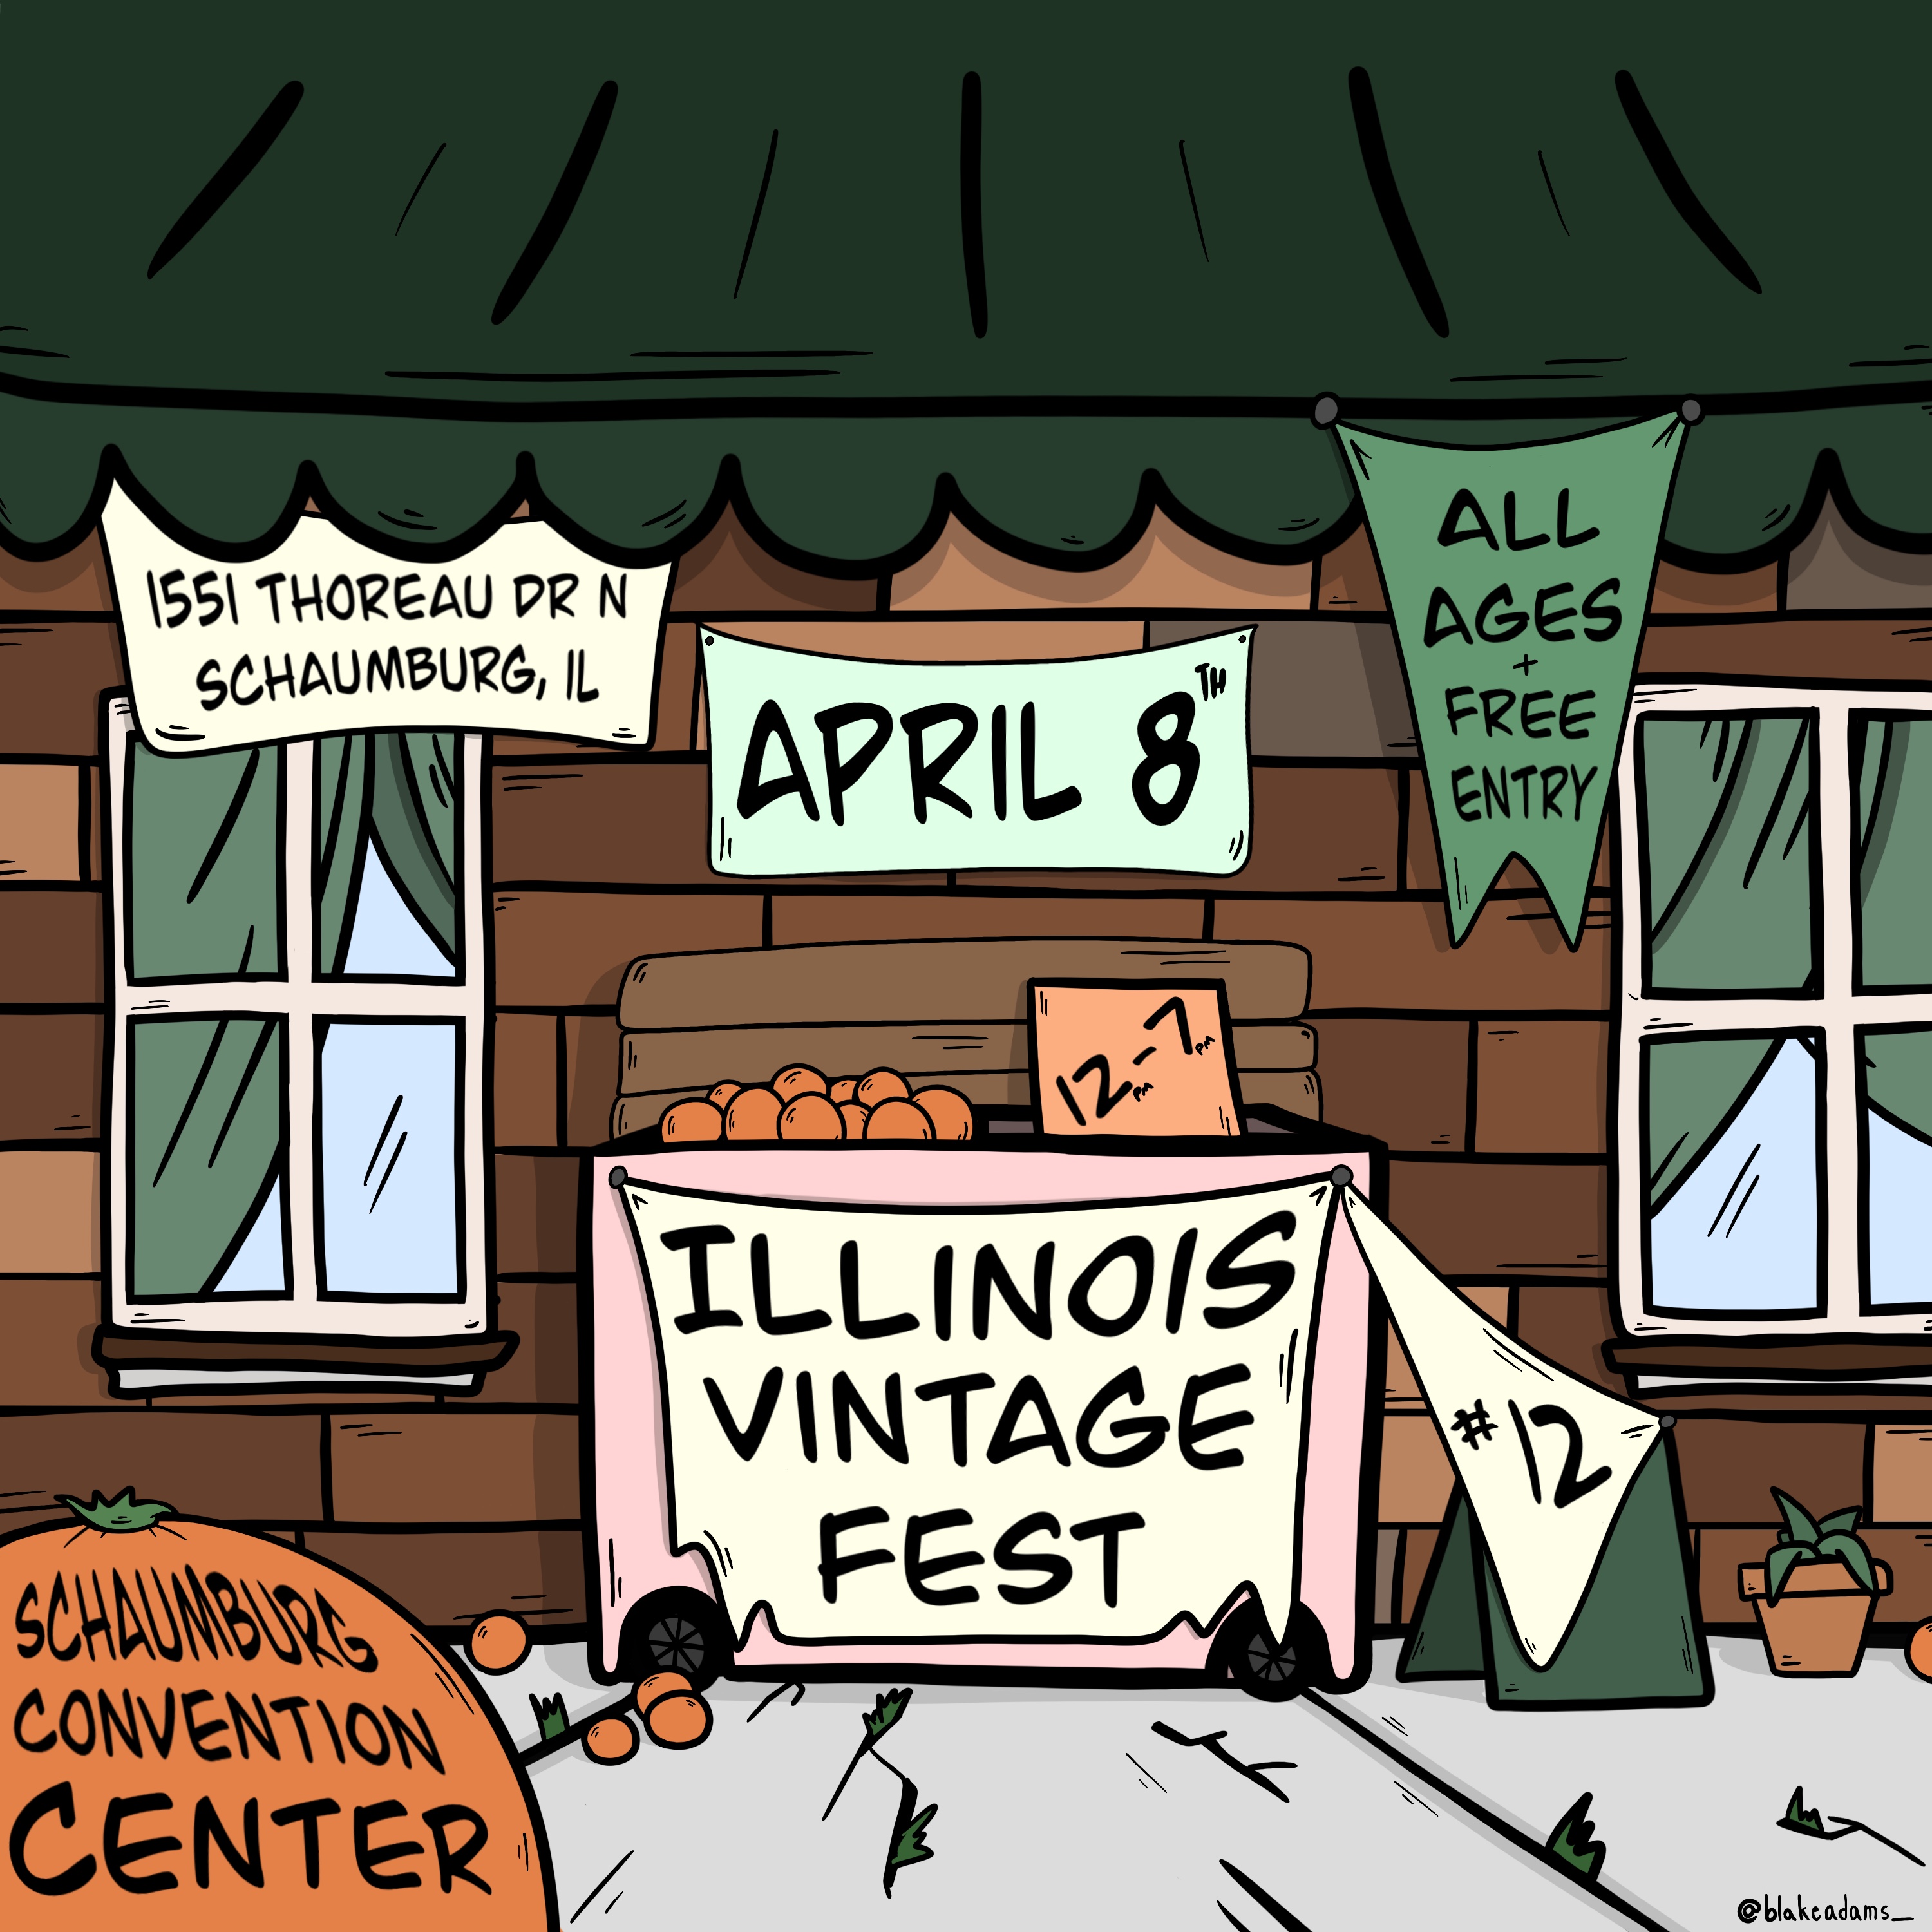 1551 THOREAU DR N
SCHAUMBURG, IL
APRIL 8TH
ALL
AGES
+
FREE
ENTRY
12PM - 7PM
ILLINOIS
VINTAGE
FEST
#12
SCHAUMBURG
CONVENTION
CENTER
@blakeadams_